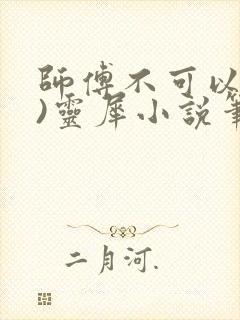 師傅不可以
)靈犀小說筆
二月河.